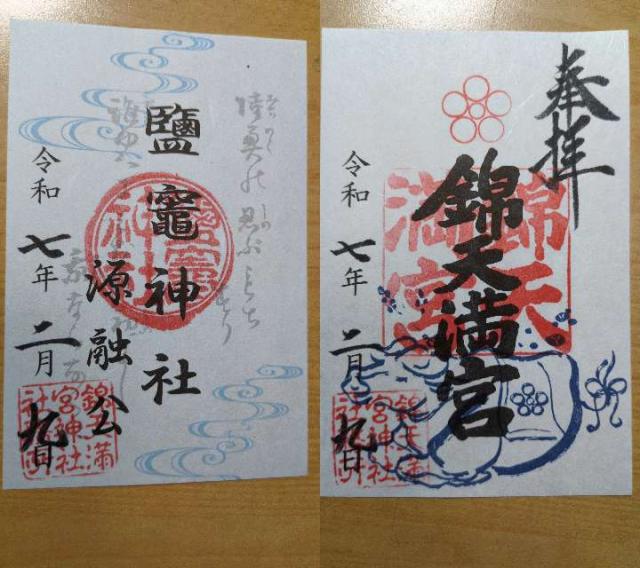 陸奥の 忍ぶもちすり
鹽竈神社
源融公
令和七年二月九日
鹽竈
神社
錦天満
宮神社
奉拝
錦天満宮
令和七年二月九日
錦天
満宮
錦天満
宮神社